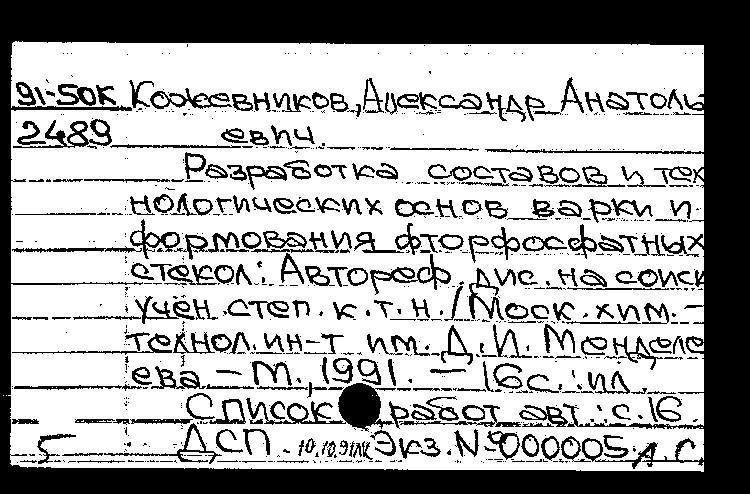 91-50К Кожевников, Александр Анатоль
2489 евич.
Разработка составов и тех
нологических основ варки и
формования фторфосфатных
стекол: Автореф. дис. на соиск
учен степ. к.т.н. / Моск. хим.-
технол. ин-т им. Д.И. Менделе
ева. – М., 1991. – 16с.: ил.
Список работ авт.: с.16.
5 ДСП. 10.10.91 Экз. № 000005 А.С.